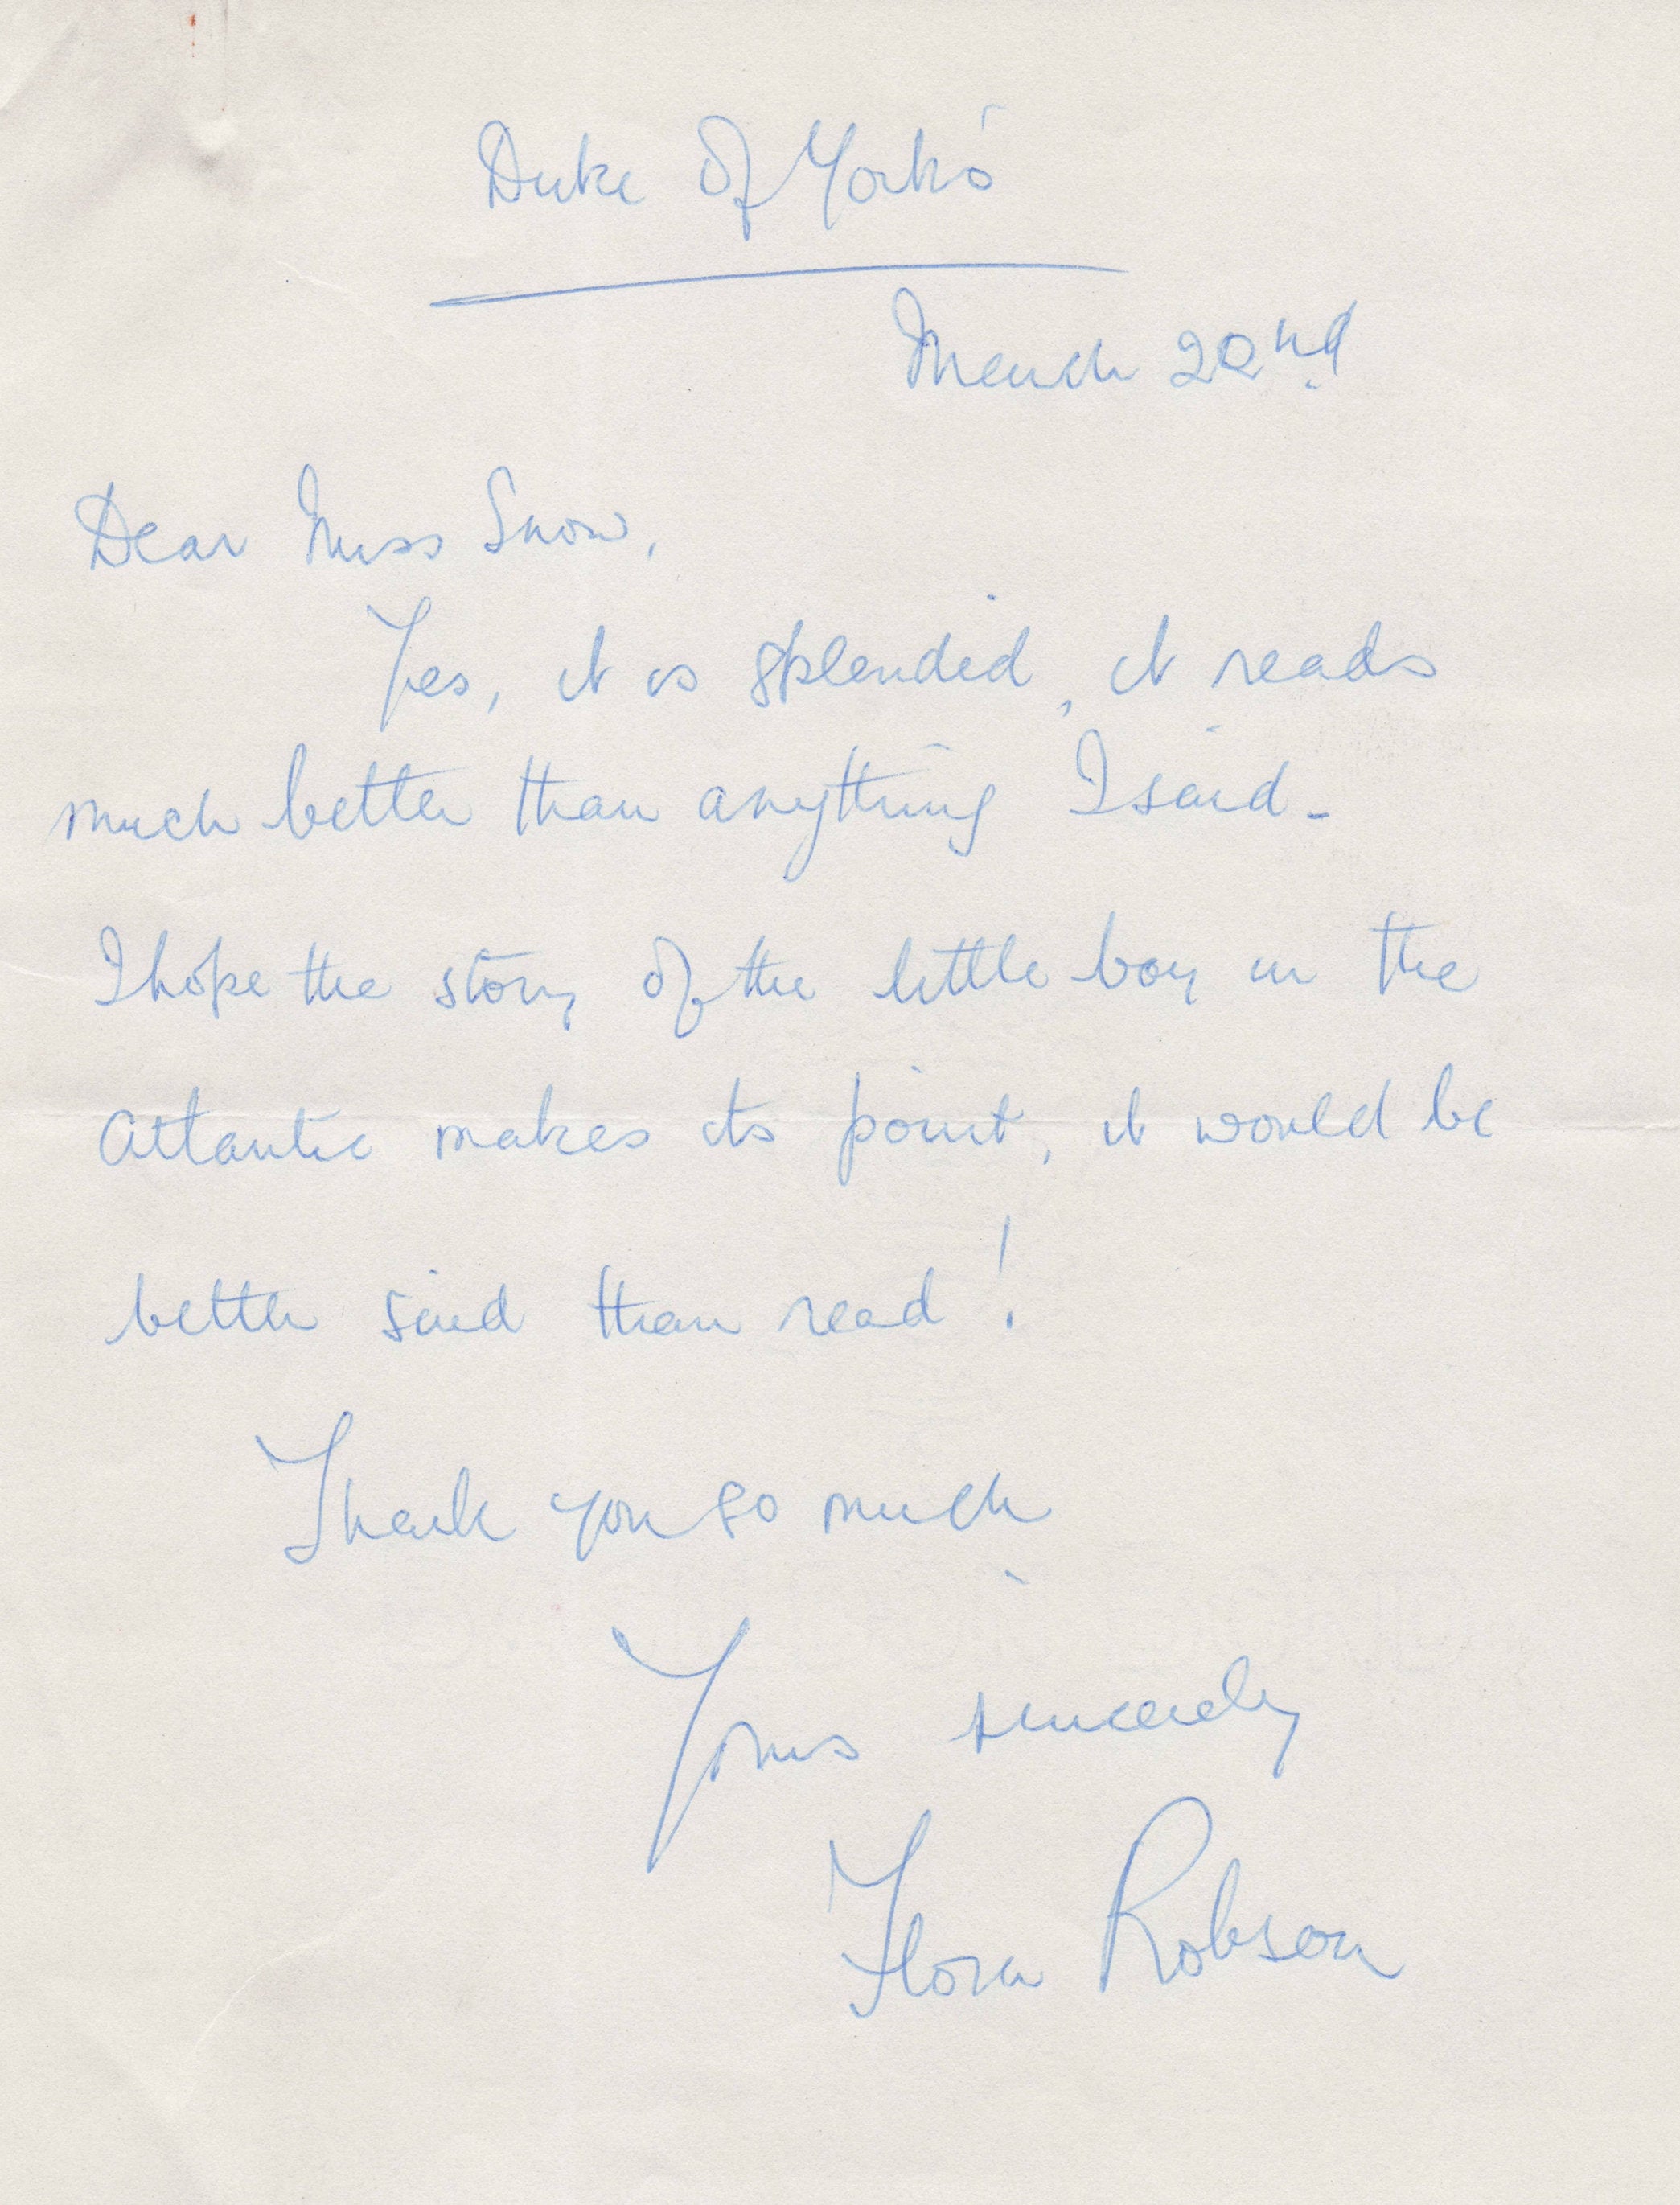 Duke of York's
March 22nd
Dear Miss Snow,
Yes, it is splendid, it reads
much better than anything I said -
I hope the story of the little boy in the
Atlantic makes its point, it would be
better said than read!
Thank you so much
Yours sincerely
Flora Robson